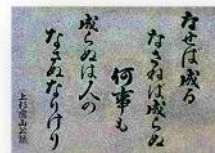 なせば成る
なさねは成らぬ
何事も
成らぬは人の
なさぬなりけり
上杉鷹山公伝